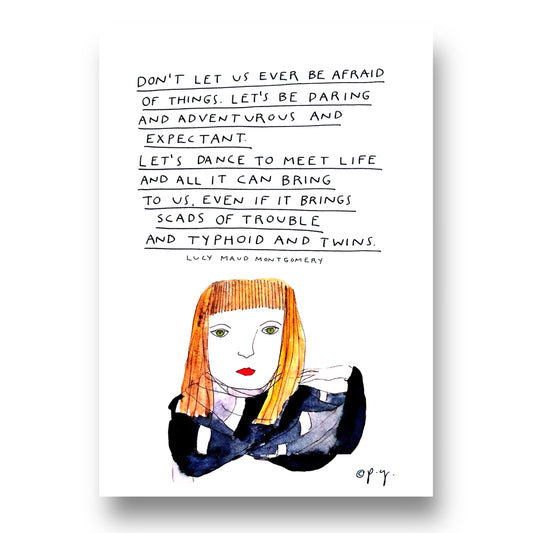 DON'T LET US EVER BE AFRAID
OF THINGS. LET'S BE DARING
AND ADVENTUROUS AND
EXPECTANT.
LET'S DANCE TO MEET LIFE
AND ALL IT CAN BRING
TO US, EVEN IF IT BRINGS
SCADS OF TROUBLE
AND TYPHOID AND TWINS.
LUCY MAUD MONTGOMERY
©p.y.